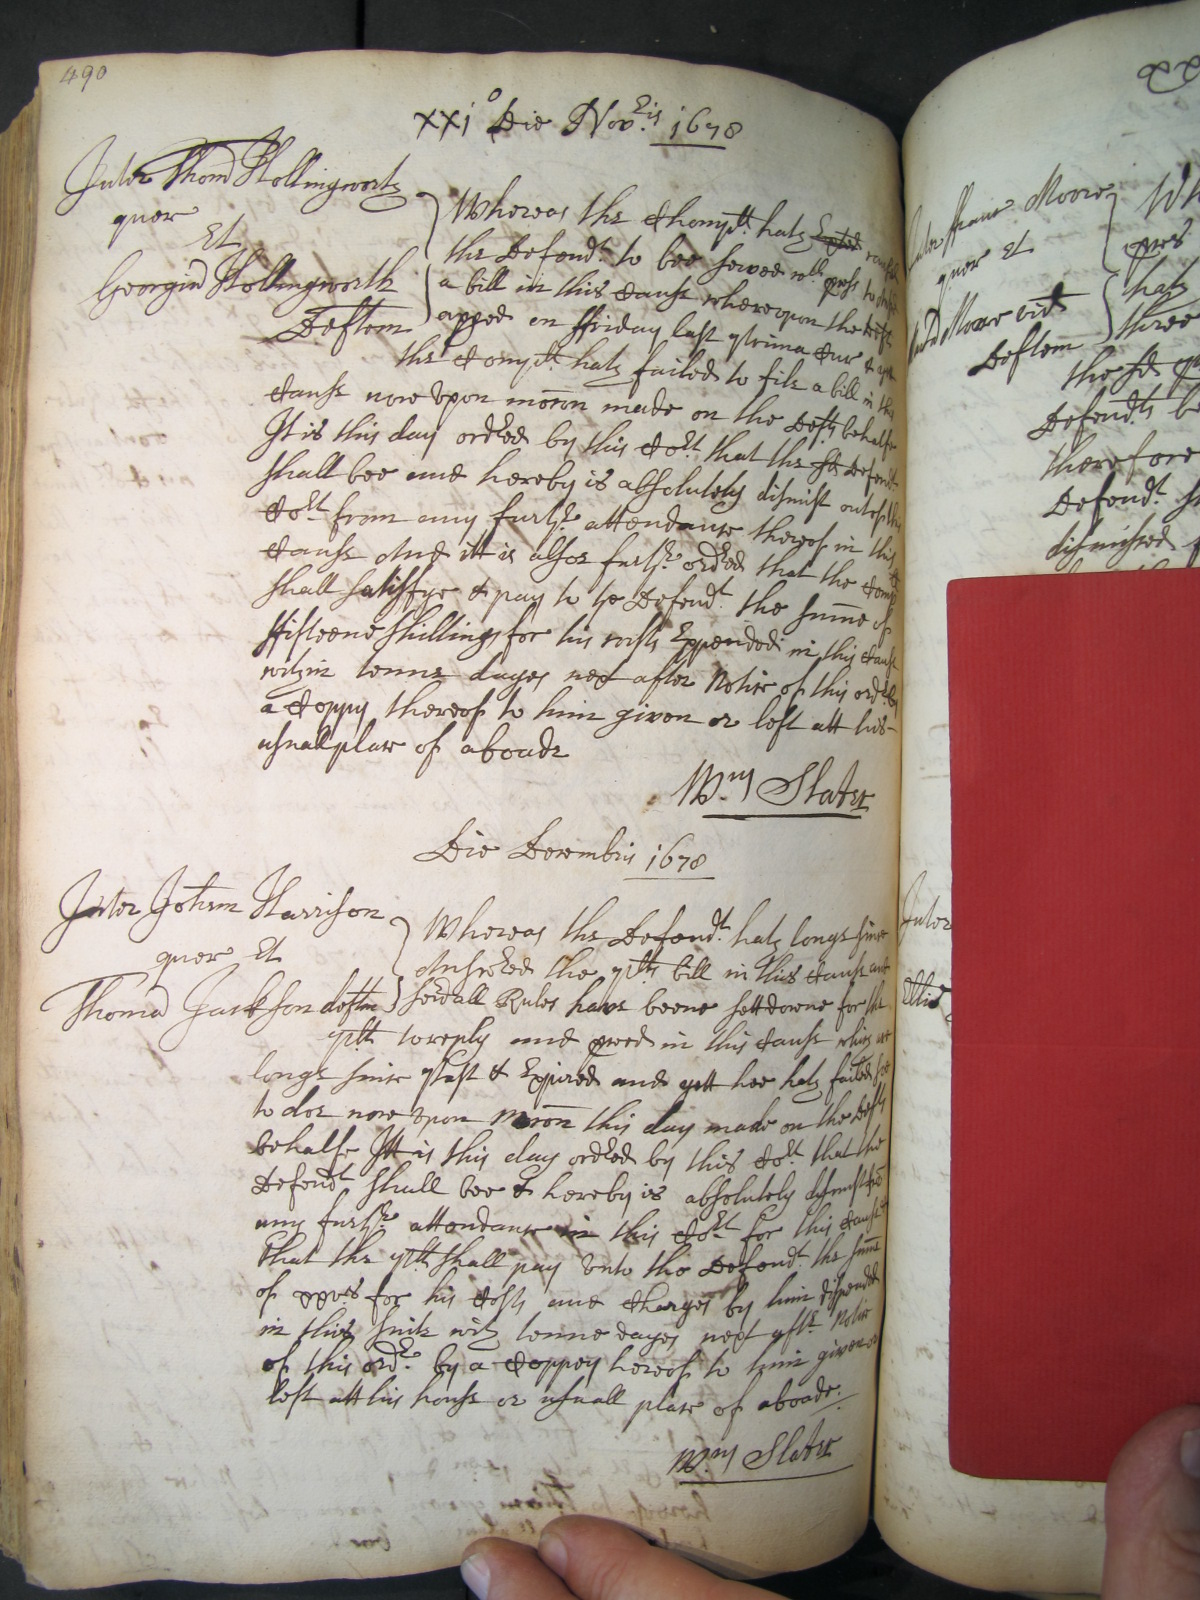 490
xxj° Die Nov:is 1678
Inter Thom Hollingworth
quer
Et
Georgiu Hollingworth
Deftem
Whereas the Comp:lt hath caused
the Defend:t to bee served w:th pross to Answ:r
a bill in this Cause whereupon the Deft
apped on ffriday last & prima Cur &
the Comp:lt hath failed to file a bill in this
Cause now upon moc̄on made on the Defts behalfe
It is this day ordred by this Co:rt that the sd Defend:t
shall bee and hereby is absolutely dismist out of this
Co:rt from any furth:r attendance thereof in this
Cause And itt is alsoe furth:r ordred that the Comp:lt
shall satisfye & pay to ye Defend:t the sum̄e of
ffifteene shillings for his costs Expended in this Cause
within tenne dayes next after Notice of this ord:r by
a Coppy thereof to him given or left att his
usuall place of aboade
W:m Slater
Die Decembris 1678
Inter Johem Harrison
quer Et
Thoma Jackson deftem
Whereas the Defend:t hath longe since
Answered the p:lts bill in this Cause and
sev:rall Rules have beene sett downe for the
p:lt to reply and pceed in this Cause which are
longe since past & Expired and yett hee hath failed soe
to doe now upon moc̄on this day made on the Defts
behalfe Itt is this day ordred by this Co:rt that the
Defend:t shall bee & hereby is absolutely dismist from
any furth:r attendance in this Co:rt for this Cause &
that the p:lt shall pay unto the Defend:t the sum̄e
of xxvs for his Costs and Charges by him dispended
in this suite with tenne dayes next aft:r Notice
of this ord:r by a Coppey hereof to him given or
left att his house or usuall place of aboade:
W:m Slater
Inter ffranc Moore
quer et
Moore vid
Deftem
Wh
pres
hath
three
the sd
Defend:ts be
therefore
Defend:t sh
dismissed
Inter